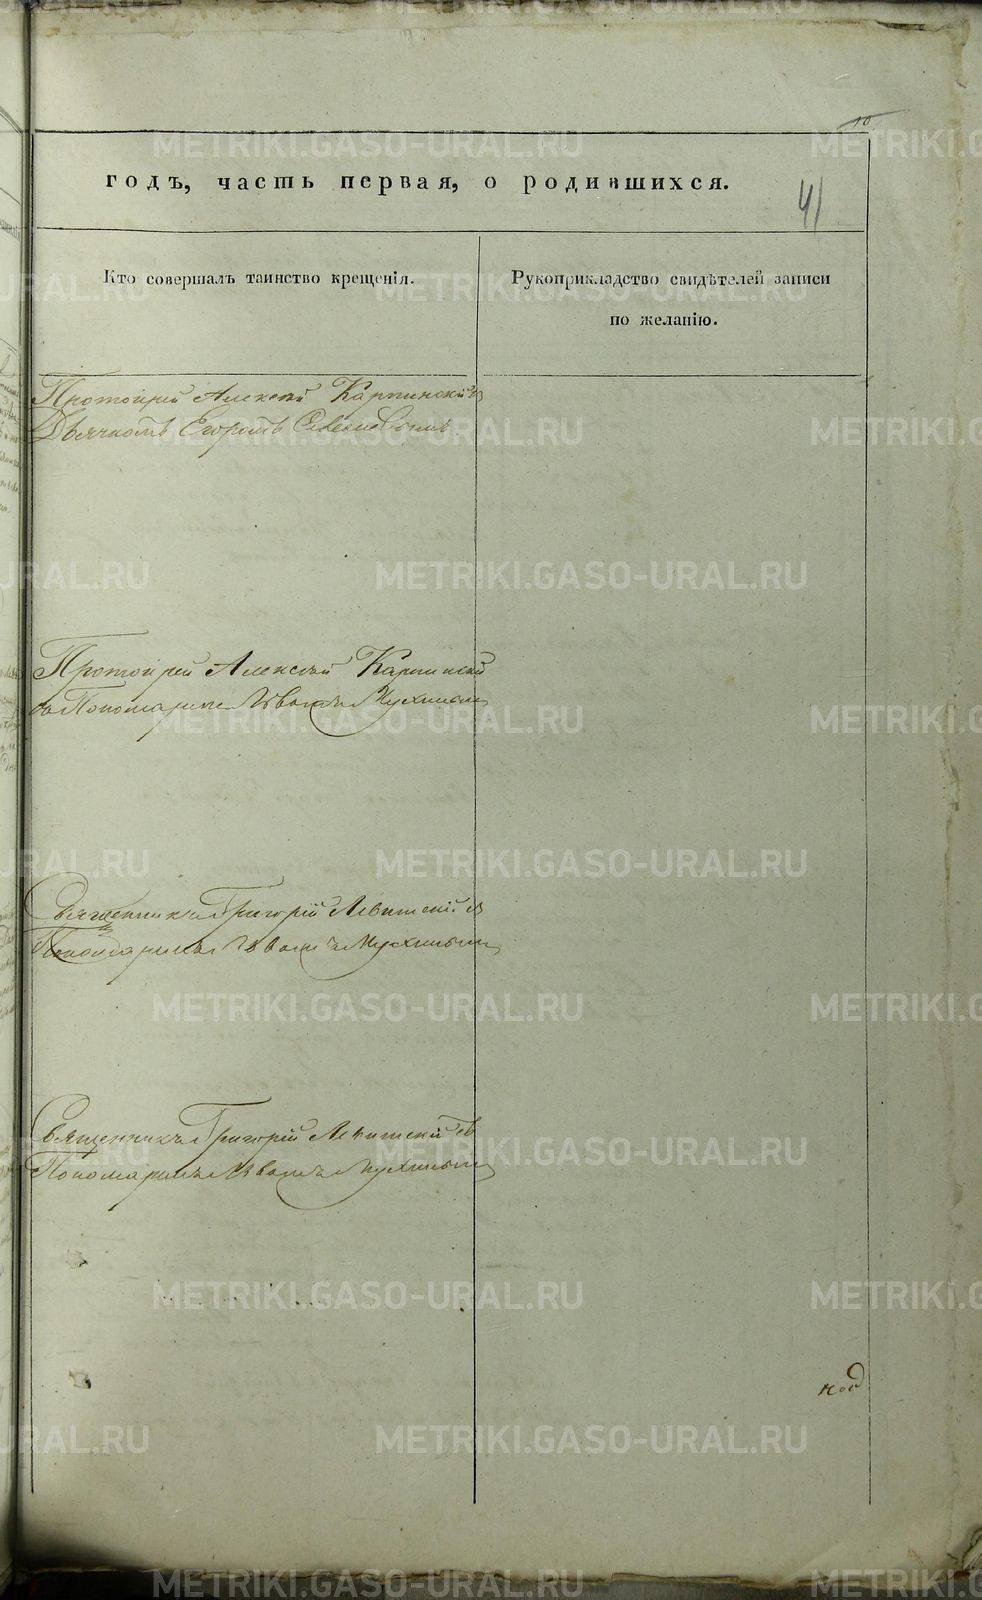 10
годъ, часть первая, о родившихся.
41
Кто совершалъ таинство крещенія.
Рукоприкладство свидѣтелей записи
по желанію.
Протоіерей Алексѣй Карпинскій съ
Дьячкомъ Егоромъ
Протоіерей Алексѣй Карпинскій
съ Пономаремъ Иваномъ Мухинымъ
Священникъ Григорій Левитскій съ
Пономаремъ Иваномъ Мухинымъ
Священникъ Григорій Левитскій съ
Пономаремъ Иваномъ Мухинымъ
METRIKI.GASO-URAL.RU